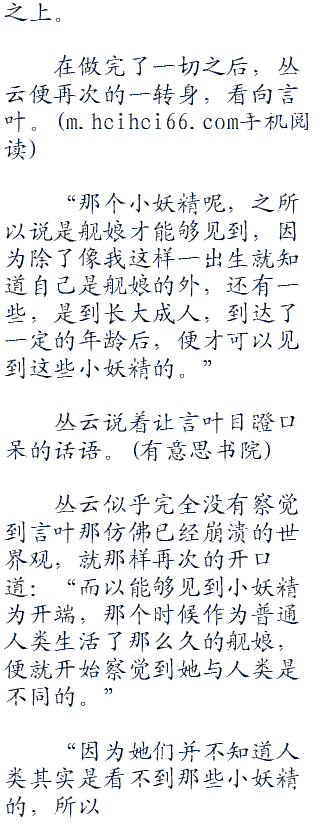 之上。
在做完了一切之后，丛
云便再次的一转身，看向言
叶。(m.hcihci66.com手机阅
读)
“那个小妖精呢，之所
以说是舰娘才能够见到，因
为除了像我这样一出生就知
道自己是舰娘的外，还有一
些，是到长大成人，到达了
一定的年龄后，便才可以见
到这些小妖精的。”
丛云说着让言叶目瞪口
呆的话语。(有意思书院)
丛云似乎完全没有察觉
到言叶那仿佛已经崩溃的世
界观，就那样再次的开口
道：“而以能够见到小妖精
为开端，那个时候作为普通
人类生活了那么久的舰娘，
便就开始察觉到她与人类是
不同的。”
“因为她们并不知道人
类其实是看不到那些小妖精
的，所以